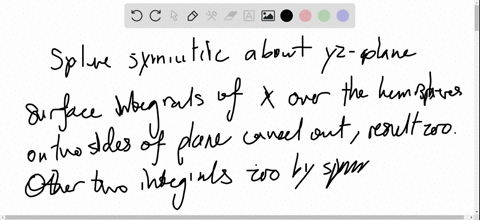 Sphere symmetric about yz-plane
surface integrals of x over the hemispheres
on two sides of plane cancel out, result zoo.
Other two integrals zoo by symm